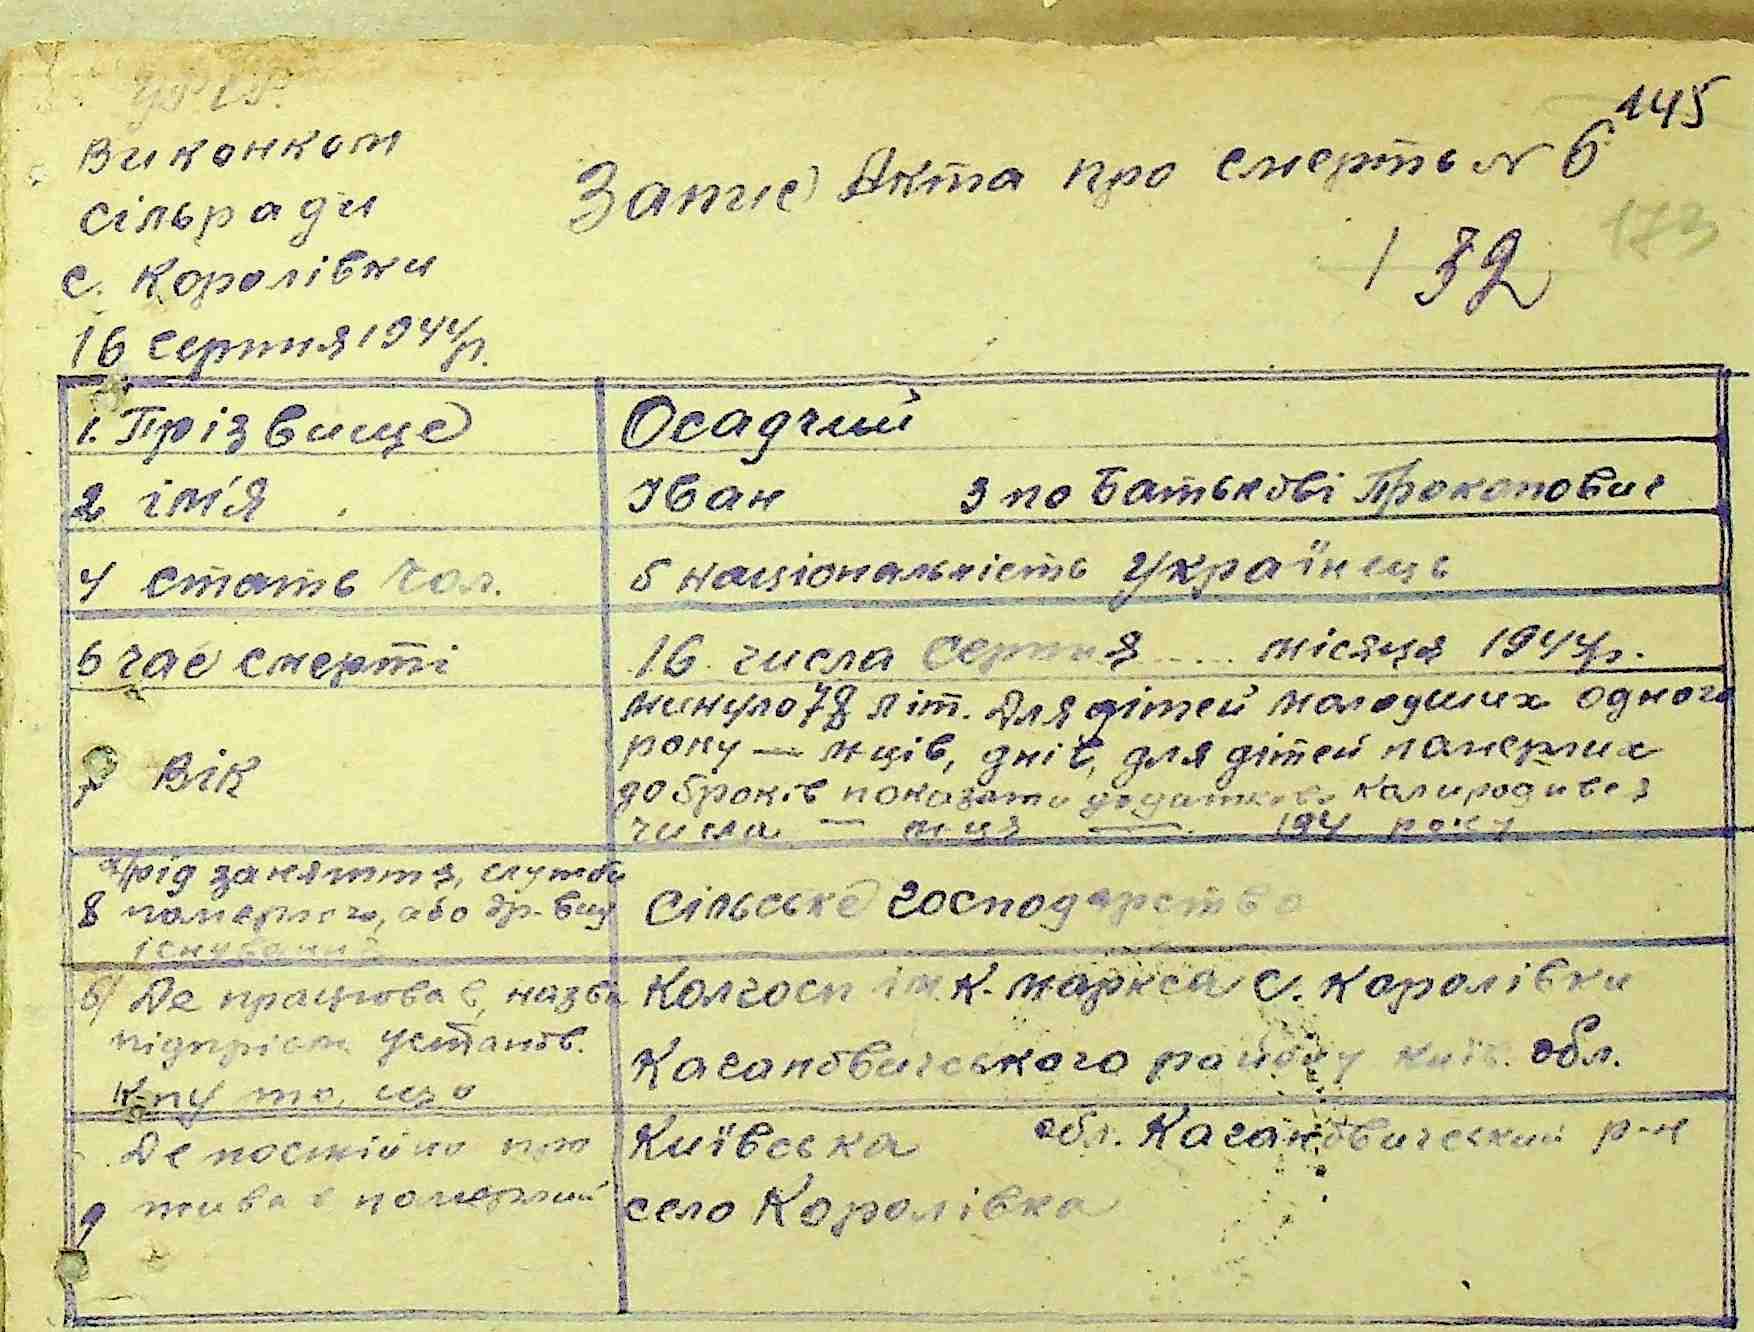 УРСР.
Виконком
сільради
с. Королівки
16 серпня 1944 р.
145
Запис Акта про смерть № 6
173
132
1. Прізвище Осадчий
2 ім'я Іван 3 по Батькові Прокопович
4 стать Чол. 5 національність Українець
6 час смерті 16 числа серпня місяця 1944 р.
7 Вік минуло 78 літ. Для дітей молодших одного
року — м-ців, днів, для дітей померлих
до 5 років показати додатково коли родився
числа — м-ця — 194 року
8 а/ рід заняття, служби
померлого, або др. вид
існування
Сільське господарство
б/ Де працював, назва
підприєм. установ.
к-пу то що
Колгосп ім. К. Маркса С. Королівки
Кагановичського району Київ. обл.
9 Де постійно про
живав померлий
Київська обл. Кагановичський р-н
село Королівка